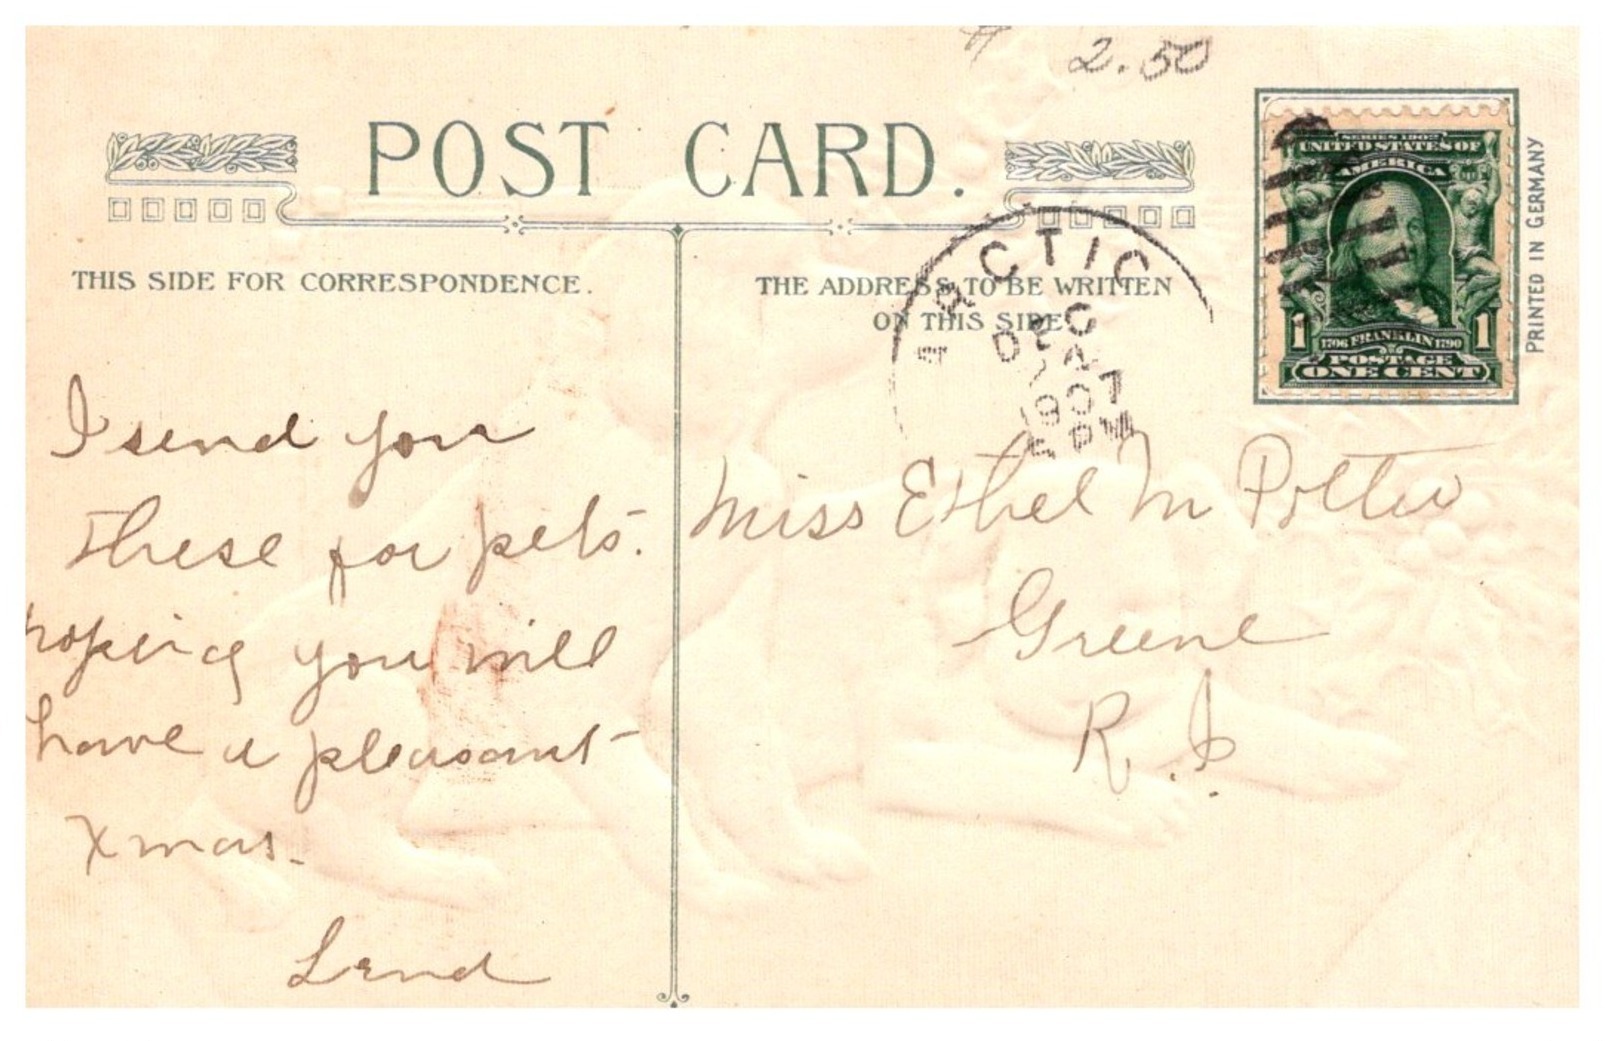 2.50
POST CARD.
THIS SIDE FOR CORRESPONDENCE.
THE ADDRESS TO BE WRITTEN
ON THIS SIDE
ARCTIC
DEC
1907
PM
SERIES 1902
UNITED STATES OF
AMERICA
1 1
1706 FRANKLIN 1790
POSTAGE
ONE CENT
PRINTED IN GERMANY
I send you
these for pets.
hoping you will
have a pleasant
Xmas.
Miss Ethel M Potter
Greene
R.I